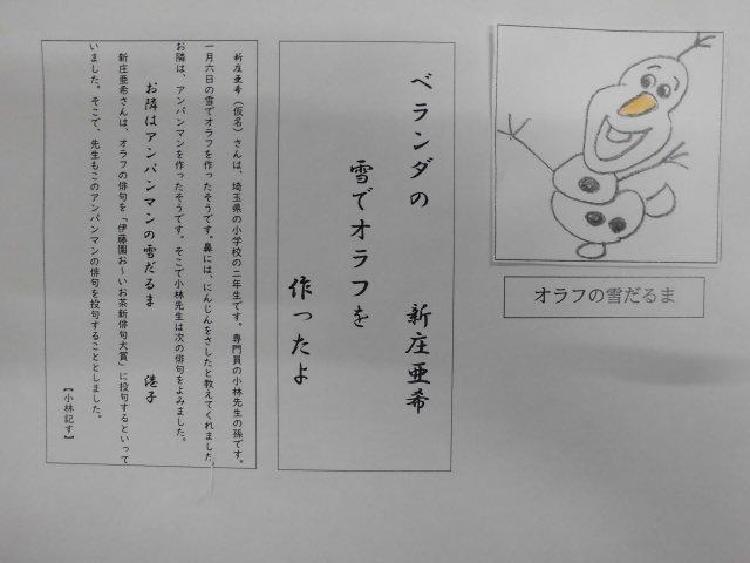 オラフの雪だるま
ベランダの
新庄亜希
雪でオラフを
作ったよ
新庄亜希（仮名）さんは、埼玉県の小学校の二年生です。専門員の小林先生の孫です。
一月六日の雪でオラフを作ったそうです。鼻には、にんじんをさしたと教えてくれました。
お隣は、アンパンマンを作ったそうです。そこで小林先生は次の俳句をよみました。
お隣はアンパンマンの雪だるま
港子
新庄亜希さんは、オラフの俳句を「伊藤園お～いお茶新俳句大賞」に投句するといって
いました。そこで、先生もこのアンパンマンの俳句を投句することとしました。
【小林記す】